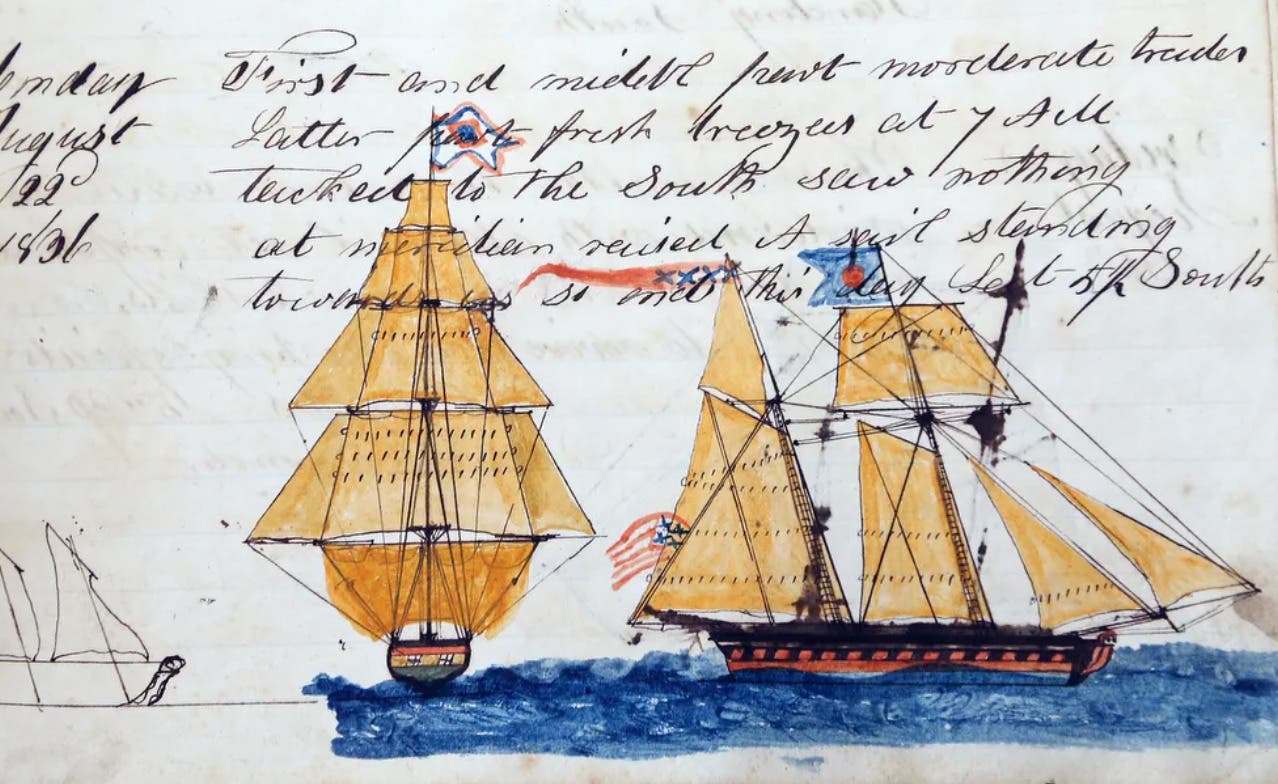 onday First and midell part morderate trades
ugust Latter part fresh breezes at 7 AM
22 tacked to the South saw nothing
1836 at meridian raised A sail standing
towards us so ends this day Lat South